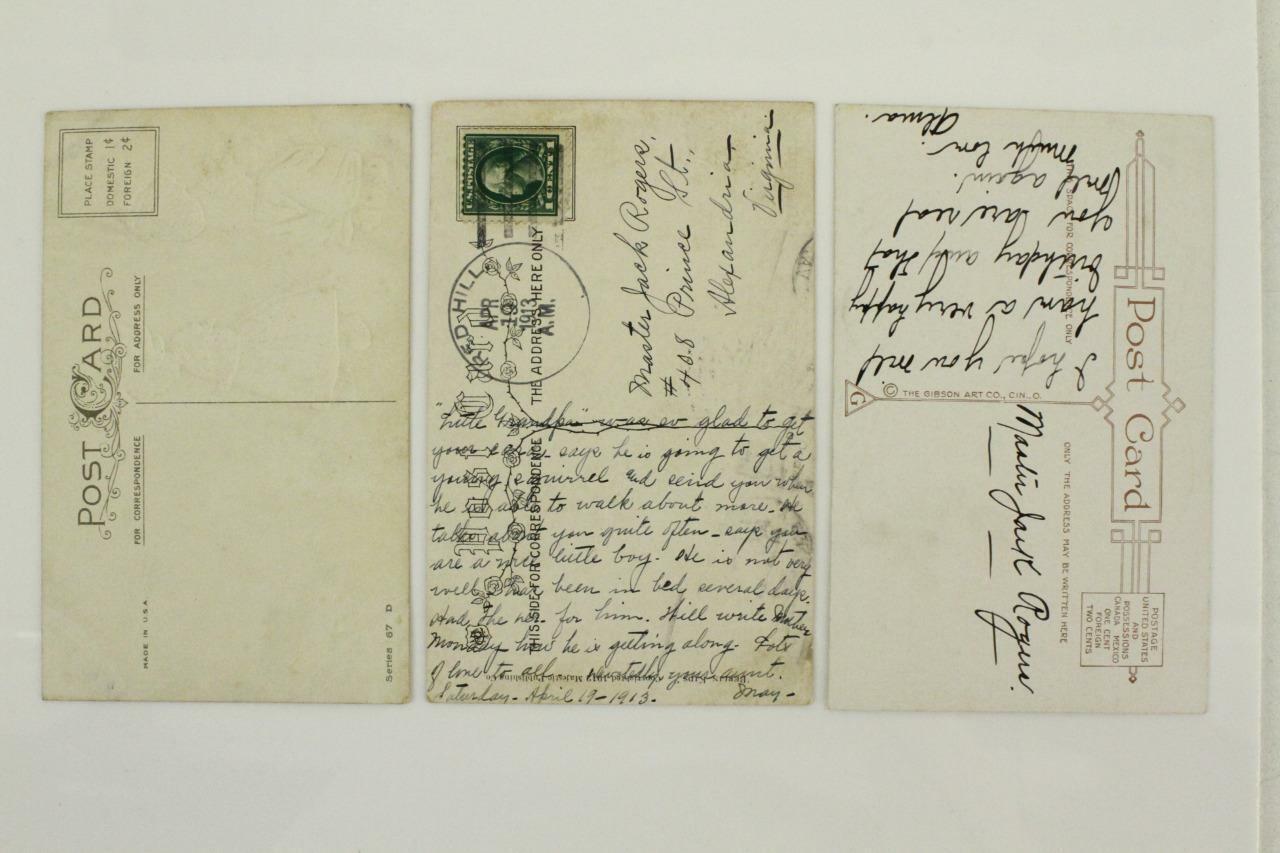 PLACE STAMP
DOMESTIC 1¢
FOREIGN 2¢
POST CARD
FOR CORRESPONDENCE
FOR ADDRESS ONLY
MADE IN U.S.A.
Series 67 D
U.S. POSTAGE
1 CENT 1
RED HILL
APR
19
1913
A.M.
THIS SIDE FOR CORRESPONDENCE
THE ADDRESS HERE ONLY
Master Jack Rogers,
# 408 Prince St.,
Alexandria,
Virginia.
"Little Grandpa" was so glad to get
your card. says he is going to get a
young squirrel and send you when
he is able to walk about more. He
talks about you quite often - says you
are a nice little boy. He is not very
well. Has been in bed several days.
Had the for him. Will write Mother
Monday how he is getting along. Lots
of love to all. your aunt.
Saturday - April 19 - 1913. May -
Majestic Publishing Co.
Post Card
POSTAGE
UNITED STATES
AND
POSSESSIONS
CANADA MEXICO
ONE CENT
FOREIGN
TWO CENTS
THIS SPACE FOR CORRESPONDENCE ONLY
ONLY THE ADDRESS MAY BE WRITTEN HERE
G
© THE GIBSON ART CO., CIN., O.
I hope you will
have a very happy
birthday and that
you
well again.
Much love.
Alma.
Master Jack Rogers.